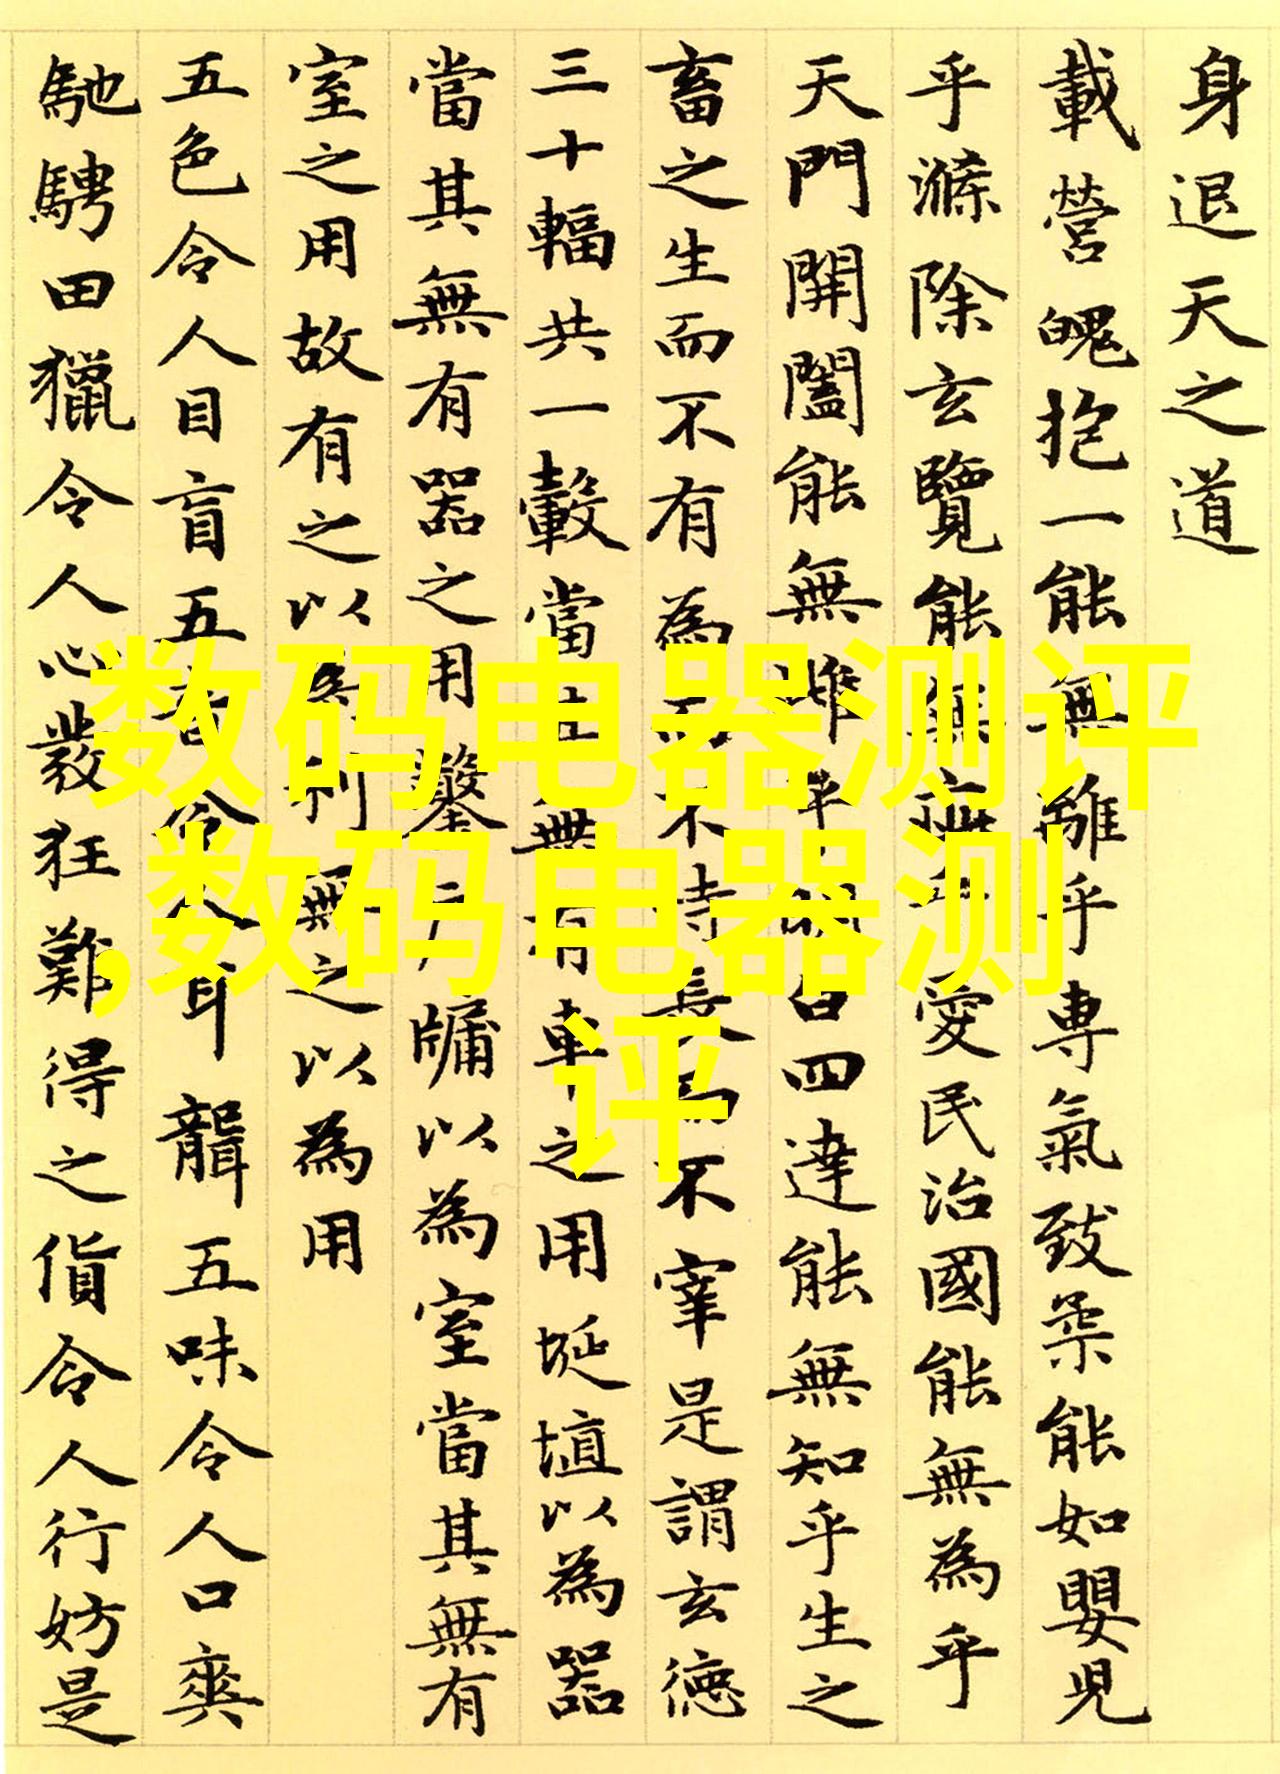 身退天之道
載營魄抱一能無離乎專氣致柔能如嬰兒
乎滌除玄覽能無疵乎愛民治國能無為乎
天門開闔能無雌乎明白四達能無知乎生之
畜之生而不有為而不恃長而不宰是謂玄德
三十輻共一轂當其無有車之用埏埴以為器
當其無有器之用鑿戶牖以為室當其無有
室之用故有之以為利無之以為用
五色令人目盲五音令人耳聾五味令人口爽
馳騁田獵令人心發狂難得之貨令人行妨是
数码电器测评
,数码电器测
评